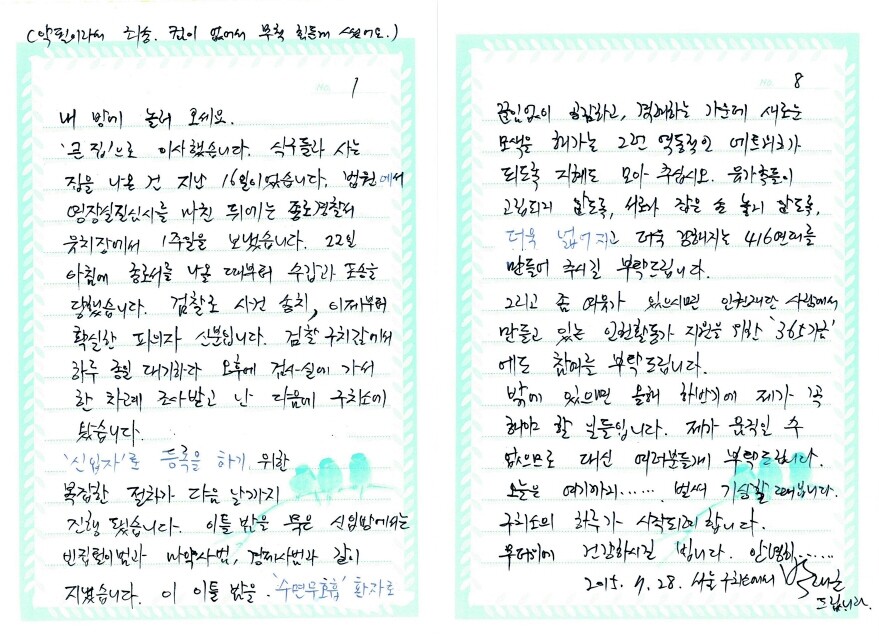 (악필이라서 죄송. 컴이 없어서 무척 힘들게 썼어요.)
No. 1
내 방에 놀러 오세요.
'큰 집'으로 이사했습니다. 식구들과 사는
집을 나온 건 지난 16일이었습니다. 법원에서
영장실질심사를 마친 뒤에는 종로경찰서
유치장에서 1주일을 보냈습니다. 22일
아침에 종로서를 나올 때부터 수갑과 포승을
당했습니다. 검찰로 사건 송치, 이제부터
확실한 피의자 신분입니다. 검찰 구치감에서
하루 종일 대기하다 오후에 검사실에 가서
한 차례 조사받고 난 다음에 구치소에
왔습니다.
'신입자'로 등록을 하기 위한
복잡한 절차가 다음 날까지
진행 됐습니다. 이틀 밤을 묵은 신입방에서는
빈집털이범과 마약사범, 경제사범과 같이
지냈습니다. 이 이틀 밤을 '수면무호흡' 환자로
No. 8
끊임없이 공감하고, 경계하는 가운데 새로운
모색을 해가는 그런 역동적인 네트워크가
되도록 지혜도 모아 주십시오. 유가족들이
고립되지 않도록, 서로가 잡은 손 놓지 않도록,
더욱 넓어지고 더욱 강해지는 416연대를
만들어 주시길 부탁드립니다.
그리고 좀 여유가 있으시면 인권재단 사람에서
만들고 있는 인권활동가 지원을 위한 '365기금'
에도 참여를 부탁드립니다.
밖에 있으면 올해 하반기에 제가 꼭
해야 할 일들입니다. 제가 움직일 수
없으므로 대신 여러분들께 부탁드립니다.
오늘은 여기까지...... 벌써 기상할 때입니다.
구치소의 하루가 시작되려 합니다.
무더위에 건강하시길 빕니다. 안녕히......
2015. 7. 28. 서울구치소에서 박래군
드립니다.